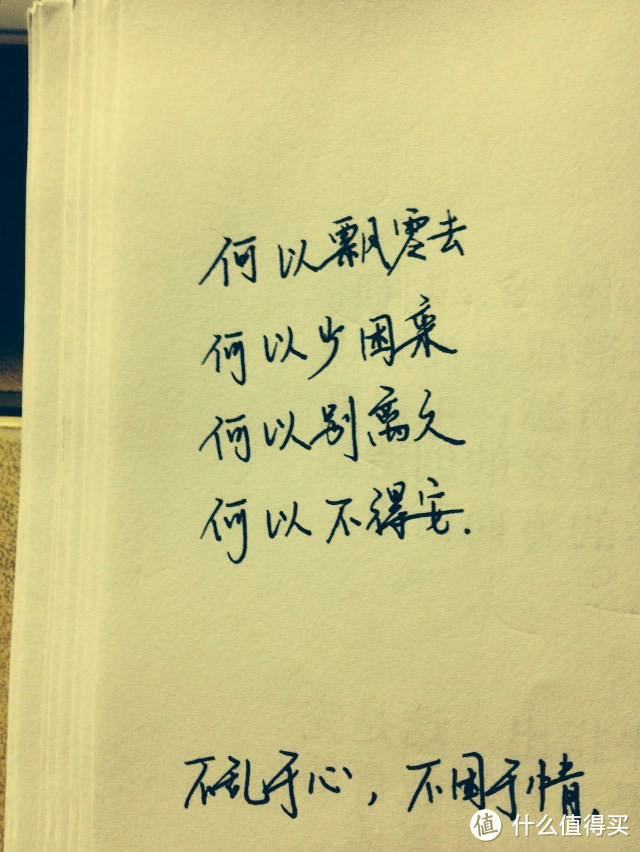 何以飘零去
何以少团栾
何以别离久
何以不得安.
不乱于心，不困于情.
值 什么值得买